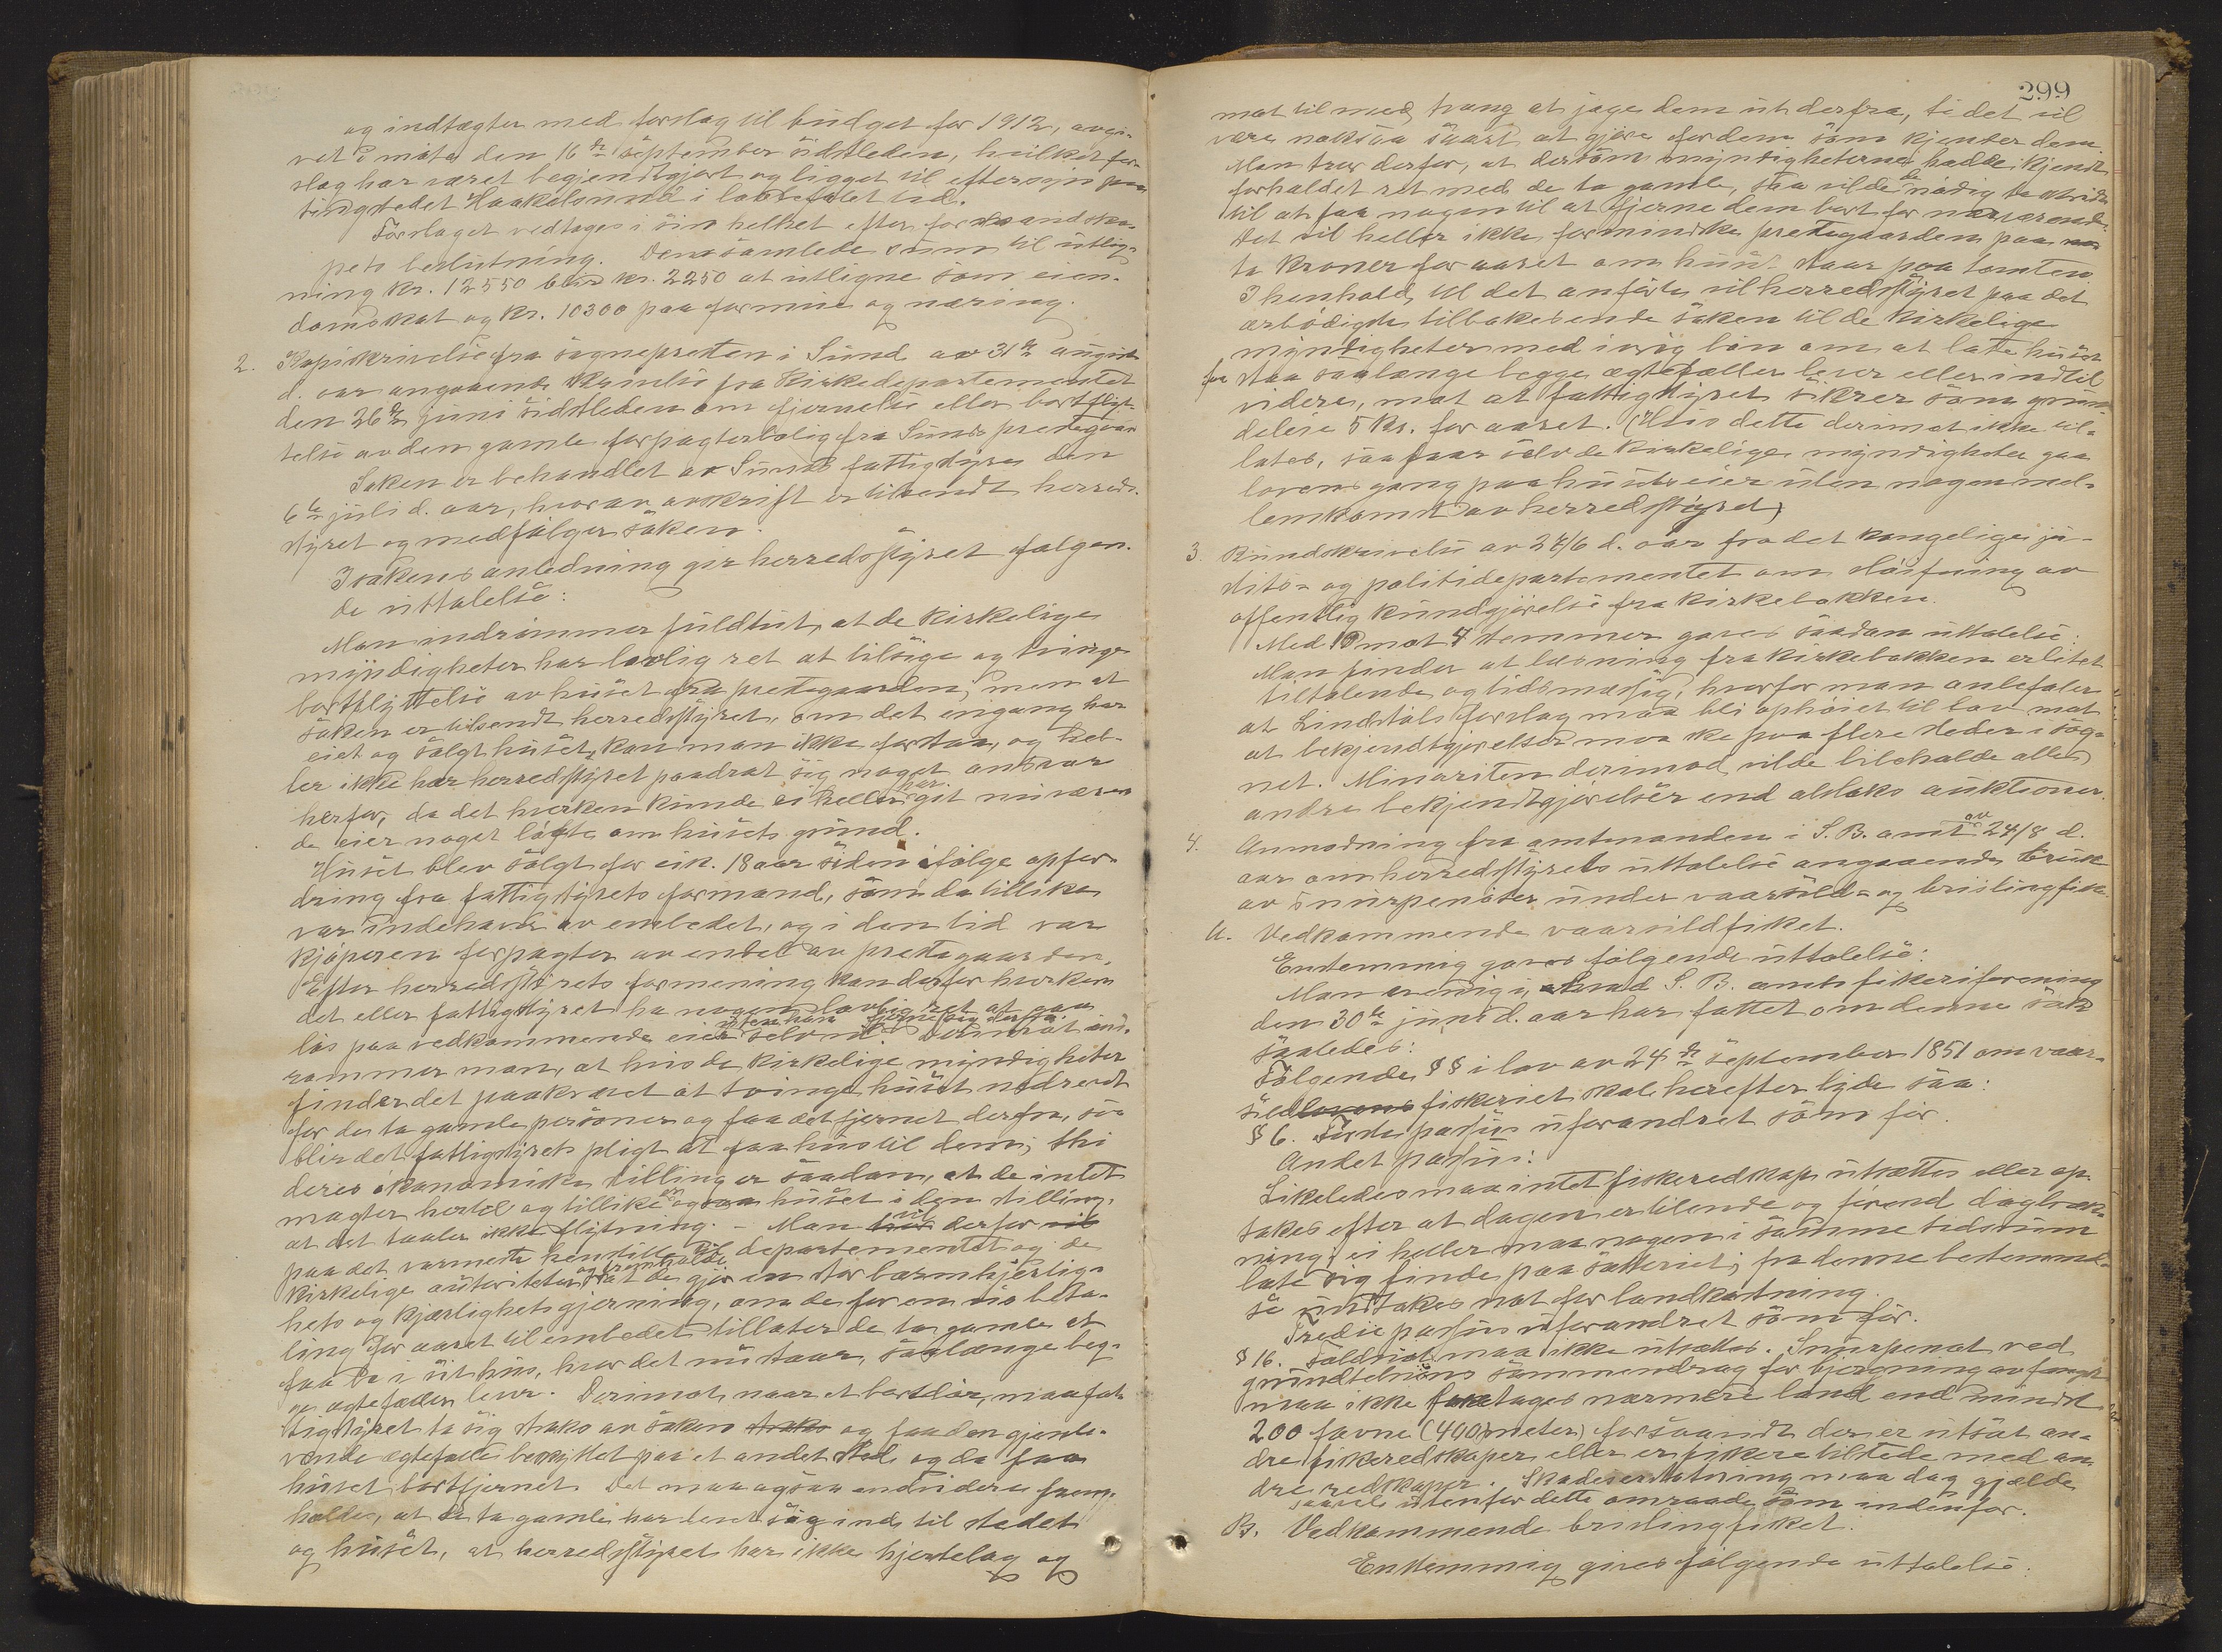 og indtægter med forslag til budget for 1912, avgi-
vet i møte den 16de september sidstleden, hvilket for-
slag har været begjendtgjort og ligget til eftersyn paa
tingstedet Haakelsund i lovbefalet tid.
Forslaget vedtages i sin helhet efter formandska-
pets beslutning. Den samlede sum til utlig-
ning kr. 12550 blir kr. 2250 at utligne som eien-
domsskat og kr. 10300 paa formue og næring.
2. Kopiskrivelse fra sognepresten i Sund av 31te august
d. aar angaaende skrivelse fra Kirkedepartementet
den 26de juni sidstleden om fjernelse eller bortflyt-
telse av den gamle forpagterbolig fra Sunds prestegaar
Saken er behandlet av Sunds fattigstyre den
6te juli d. aar, hvorav avskrift er tilsendt herreds-
styret og medfølger saken.
I sakens anledning gir herredsstyret følgen-
de uttalelse:
Man indrømmer fuldtut, at de kirkelige
myndigheter har lovlig ret at tilsige og tvinge
bortflyttelse av huset fra prestegaarden, men at
saken er tilsendt herredsstyret, om det engang har
eiet og solgt huset, kan man ikke forstaa, og hel-
ler ikke har herredsstyret paadrat sig noget ansvar
herfor, da det hverken kunde ei heller har git nuværen
de eier noget løfte om husets grund.
Huset blev solgt for cirk. 18 aar siden ifølge opfor-
dring fra fattigstyrets formand, som da tillike
var indehaver av embedet, og i den tid var
kjøperen forpagter av endel av prestegaarden.
Efter herredsstyrets formening kan derfor hverken
det eller fattigstyret ha nogen lovlig ret at gaa
løs paa vedkommende eier uten han selv vil fjerne sig derfra. Derimot ind-
rømmer man, at hvis de kirkelige myndigheter
finder det paakrævet at tvinge huset nedrevet
for de to gamle personer og faa det fjernet derfra, saa
blir det fattigstyrets pligt at faa hus til dem, thi
deres økonomiske stilling er saadan, at de intet
magter hertil og tillike er ogsaa huset i den stilling,
at det taaler ikke flytning. - Man vil derfor
paa det varmeste henstille til departementet og de
kirkelige autoriteter og fremholde at de gjør en stor barmhjertig-
hets og kjærlighetsgjerning, om de for en vis beta-
ling for aaret til embedet tillater de to gamle at
faa bo i sit hus, hvor det nu staar, saalænge beg-
ge ægtefæller lever. Derimot, naar et bortdør, maa fat-
tigstyret ta sig straks av saken straks og faa den gjenle-
vende ægtefælle beskyttet paa et andet sted og da faa
huset bortfjernet. Det maa ogsaa endvidere frem-
holdes, at de to gamle har levet sig ind til stedet
og huset, at herredsstyret har ikke hjertelag og
299
mot til med tvang at jage dem ut derfra, ti det vil
være noksaa svært at gjøre for dem som kjender dem.
Man tror derfor, at dersom myndigheterne hadde kjendt
forholdet ret med de to gamle, saa vilde de nødig
til at faa nogen til at fjerne dem bort for nærværende.
Det vil heller ikke forminske prestegaarden paa no-
ta kroner for aaret om huset staar paa tomten
I henhold til det anførte vil herredsstyret paa det
ærbødigste tilbakesende saken til de kirkelige
myndigheter med ivrig bøn om at late huset
faa staa saalænge begge ægtefæller lever eller indtil
videre, mot at fattigstyret sikrer som grund-
deleie 5 kr. for aaret. (Hvis dette derimot ikke til-
lates, saa faar selv de kirkelige myndigheter gaa
lovens gang paa husets eier uten nogen mel-
lemkomst av herredsstyret)
3. Rundskrivelse av 28/6 d. aar fra det kongelige ju-
stits- og politidepartementet om sløifning av
offentlig kundgjørelse fra kirkebakken.
Med 12 mot 4 stemmer gaves saadan uttalelse:
Man finder at læsning fra kirkebakken er litet
tiltalende og tidsmæssig, hvorfor man anbefaler
at Lindstøls forslag maa bli ophøiet til lov mot
at bekjendtgjørelser maa ske paa flere steder i sog-
net. Minoriten derimod vilde bibeholde alle
andre bekjendtgjørelser end alslaks auktioner.
4. Anmodning fra amtmanden i S. B. amt av 24/8 d.
aar om herredsstyrets uttalelse angaaende bruk
av snurpenøter under vaarsild- og brislingfiske.
A. Vedkommende vaarsildfisket.
Enstemmig gaves følgende uttalelse:
Man er enig i, hvad S. B. amts fiskeriforening
den 30te juni d. aar har fattet om denne sak
saaledes:
Følgende §§ i lov av 24de september 1851 om vaar-
sildfiskeriet skal herefter lyde saa:
§ 6. Første passus uforandret som før.
Andet passus:
Likeledes maa intet fiskeredskap utsættes eller op-
takes efter at dagen er tilende og førend dagbræk-
ning, ei heller maa nogen i samme tidsrum
late sig finde paa sætteriet; fra denne bestemmel-
se undtakes not for landkastning.
Tredie passus uforandret som før.
§ 16. maa ikke utsættes. Snurpenot ved
grundtelnens sammendrag for bjergning av fangst
maa ikke foretages nærmere land end mindst
200 favne (400 meter) forsaavidt der er utsat an-
dre fiskeredskaper eller er fiskere tilstede med an-
dre redskaper. Skadeserstatning maa dog gjælde
saavel utenfor dette omraade som indenfor.
B. Vedkommende brislingfisket.
Enstemmig gives følgende uttalelse: